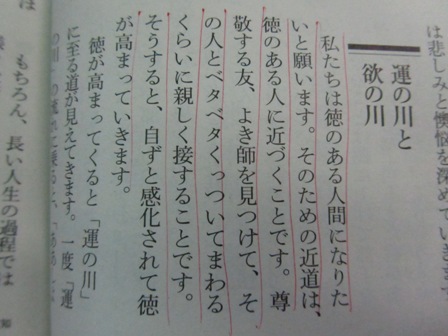 は悲しみや懊悩を深めていきます
運の川と
欲の川
私たちは徳のある人間になりた
いと願います。そのための近道は、
徳のある人に近づくことです。尊
敬する友、よき師を見つけて、そ
の人とベタベタくっついてまわる
くらいに親しく接することです。
そうすると、自ずと感化されて徳
が高まっていきます。
徳が高まってくると「運の川」
に至る道が見えてきます。一度「運
もちろん、長い人生の過程では